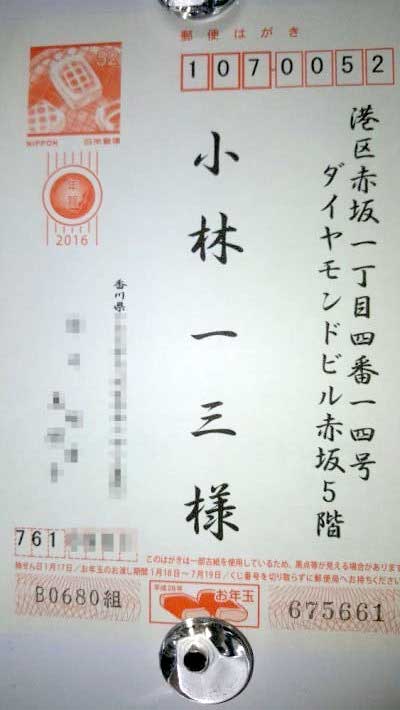 郵便はがき
1070052
港区赤坂一丁目四番一四号
ダイヤモンドビル赤坂5階
小林一三様
52
NIPPON 日本郵便
年賀
2016
香川県
761
このはがきは一部古紙を使用しているため、黒点等が見える場合があります
抽せん日1月17日/お年玉のお渡し期間1月18日~7月19日/くじ番号を切り取らずに郵便局へお持ちください
B0680組
平成28年
お年玉
675661